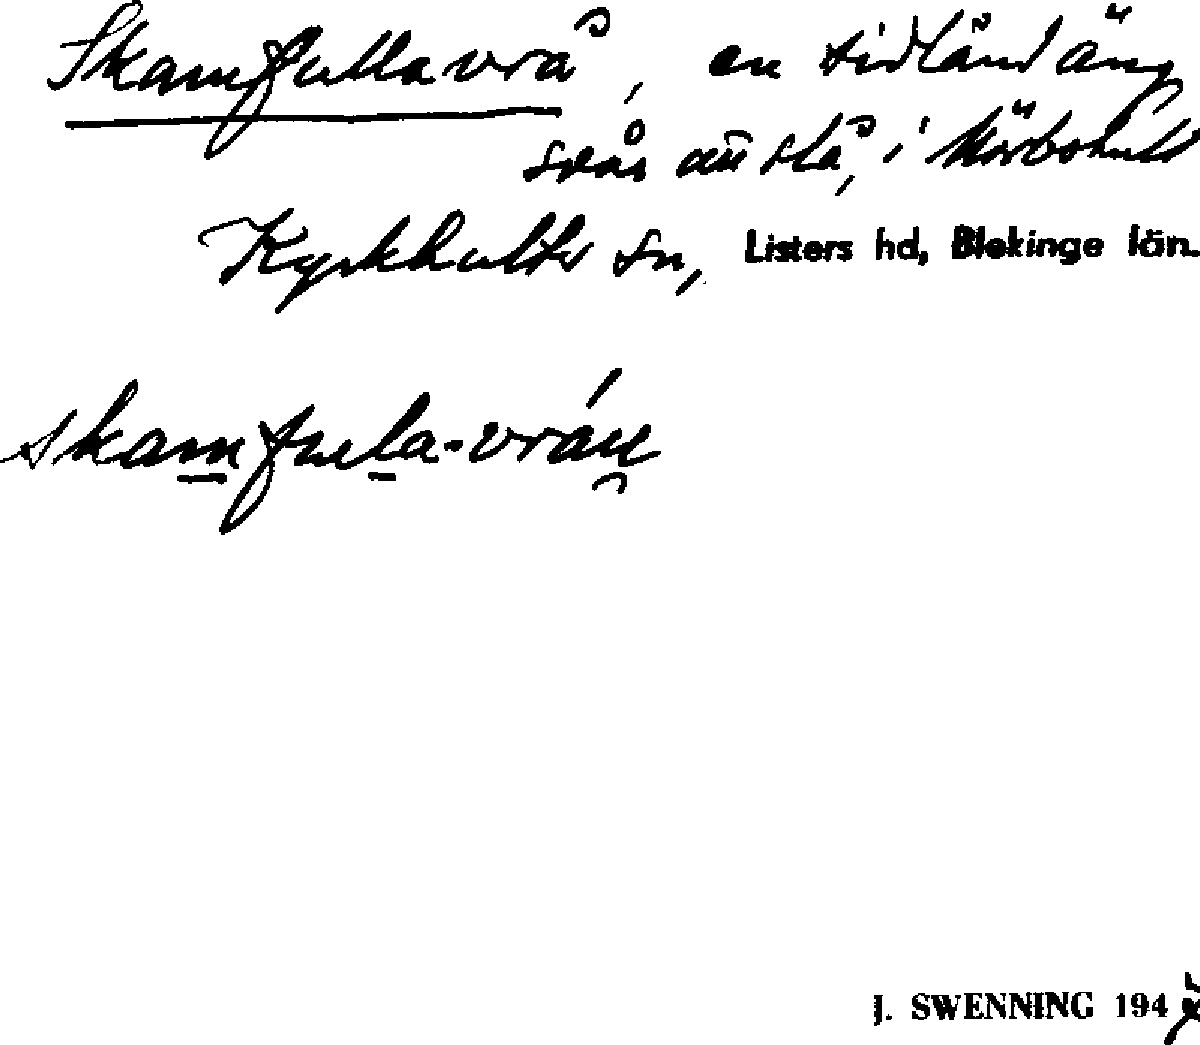 Skamfullavrå, en sidländ äng
svår att slå, i Mörbohult
Kyrkhults sn, Listers hd, Blekinge län.
skamfula-vrån
J. SWENNING 194